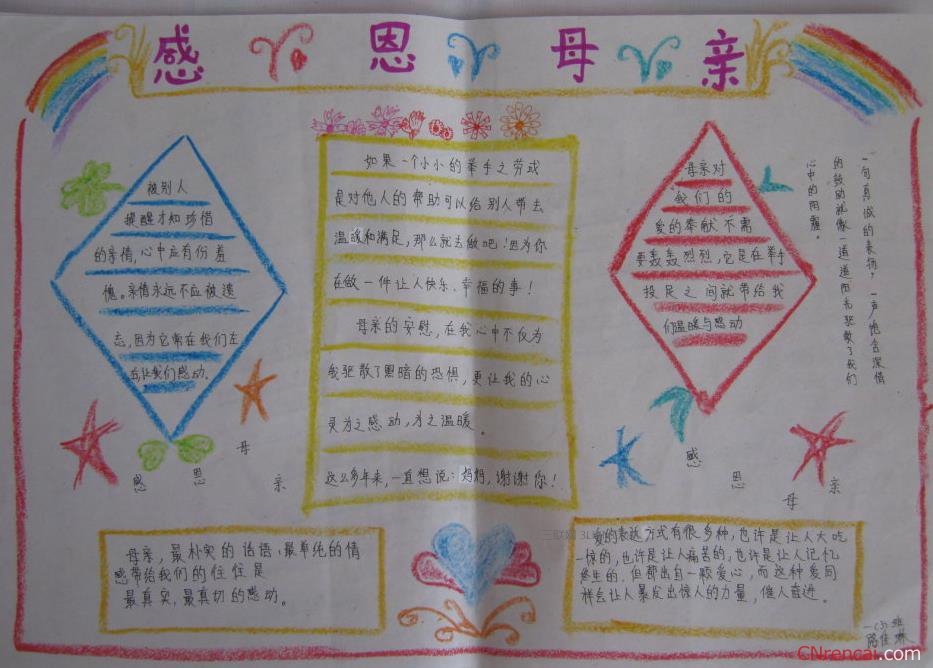 感恩母亲
被别人
提醒才知珍惜
的亲情,心中应有份羞
愧。亲情永远不应被遗
忘,因为它常在我们左
右让我们感动.
感恩母亲
如果一个小小的举手之劳或
是对他人的帮助可以给别人带去
温暖和满足,那么就去做吧!因为你
在做一件让人快乐、幸福的事!
母亲的安慰,在我心中不仅为
我驱散了黑暗的恐惧,更让我的心
灵为之感动,为之温暖。
这么多年来,一直想说:妈妈,谢谢你!
母亲对
我们的
爱的奉献不需
要轰轰烈烈,它是在举手
投足之间就带给我
们温暖与感动
感恩母亲
一句真诚的表扬,一声饱含深情
的鼓励就像一道道阳光驱散了我们
心中的阴霾。
母亲,最朴实的话语,最单纯的情
感带给我们的往往是
最真实、最真切的感动。
爱的表达方式有很多种,也许是让人大吃
一惊的,也许是让人痛苦的,也许是让人记忆
终生的.但都出自一颗爱心,而这种爱同
样会让人暴发出惊人的力量,催人奋进。
一(3)班
CNrencai.com